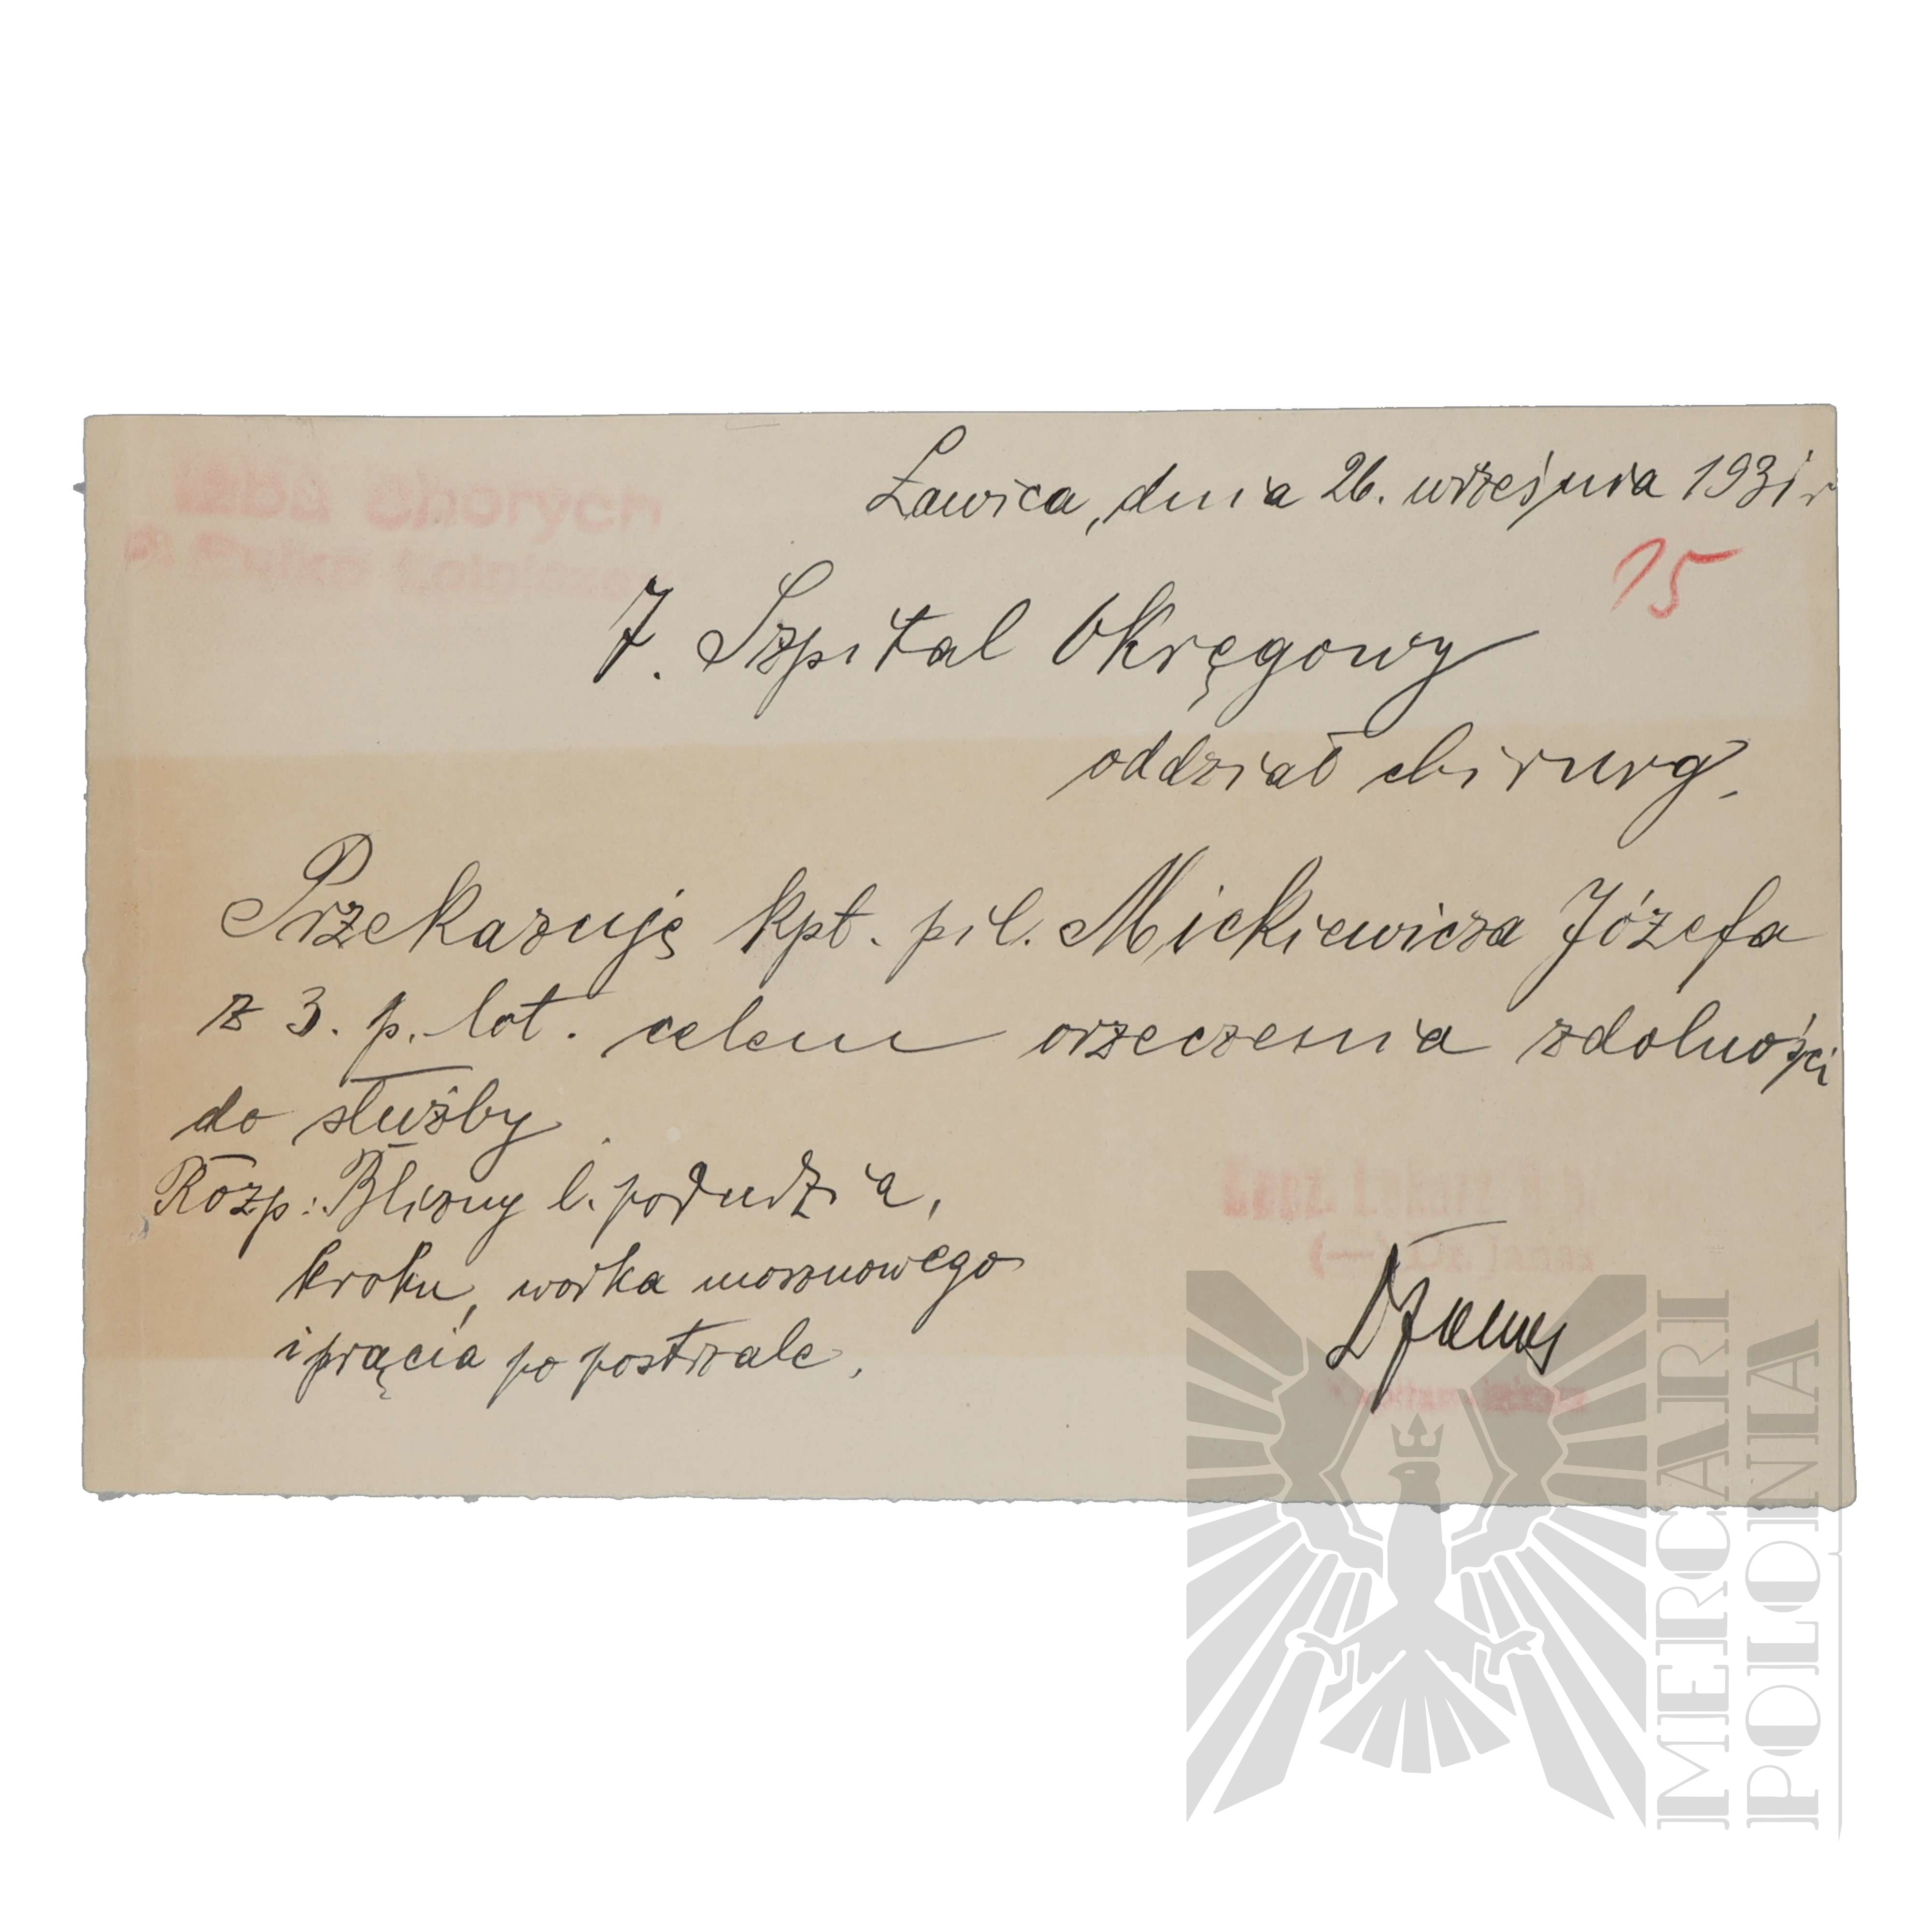 Izba Chorych
3 Pułku Lotniczego
Ławica, dnia 26. września 1931 r
15
7. Szpital Okręgowy
oddział chirurg.
Przekazuję kpt. pil. Mickiewicza Józefa
z 3. p. lot. celem orzeczenia zdolności
do służby.
Rozp: Blizny l. podudzia,
kroku, worka mosznowego
i prącia po postrzale.
Lekarz
(—) Dr. Janas
Dr Janas
MERCARI
POLONIA